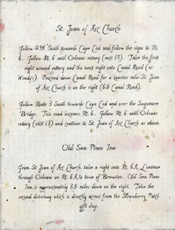 St. Joan of Arc Church
Follow I-95 South towards Cape Cod and follow the signs to Rt.
6. Follow Rt. 6 until Orleans rotary (exit 13). Take the first
right around rotary and the next right onto Canal Road (at
Wendy's). Proceed down Canal Road for a quarter mile St. Joan
of Arc church is on the right (61 Canal Road).
Follow Route 3 South towards Cape Cod and over the Sagamore
Bridge. This road becomes Rt. 6. Follow Rt. 6 until Orleans
rotary (exit 13) and continue to St. Joan of Arc Church as above.
Old Sea Pines Inn
From St. Joan of Arc Church, take a right onto Rt. 6A. Continue
through Orleans on Rt. 6A to town of Brewster. Old Sea Pines
Inn is approximately 3.5 miles down on the right. Take the
second driveway which is directly across from the Strawberry Patch
gift shop.